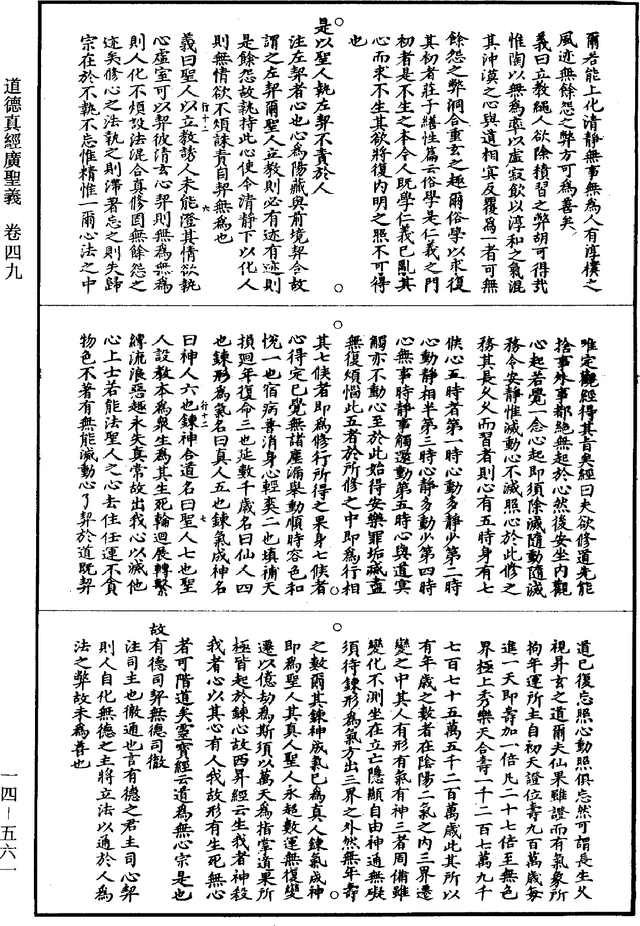 道德真經廣聖義 卷四九
一四-五六一
爾若能上化清靜無事無為人有淳樸之
風迹無餘怨之弊方可為善矣
義曰立教繩人欲除積習之弊胡可得哉
惟陶以無為率以虛寂飲以淳和之氣混
其沖漠之心與道相冥反覆為一者可無
餘怨之弊洞合重玄之趣爾俗學以求復
其初者莊子繕性篇云俗學是仁義之門
初者是不生之本令人既學仁義已亂其
心而求不生其欲將復内明之照不可得
也
是以聖人執左契不責於人
注左契者心也心為陽藏與前境契合故
謂之左契爾聖人立教則必有迹有迹則
是餘怨故執持此心使令清靜下以化人
則無情欲不煩誅責自契無為也
義曰聖人以立教誘人未能澄其情欲執
心虛室可以契彼清玄心契則無為無為
則人化不煩設法混合真修固無餘怨之
迹矣修心之法執之則滯著忘之則失歸
宗在於不執不忘惟精惟一爾心法之中
唯定觀經得其旨矣經曰夫欲修道先能
捨事外事都絕無起於心然後安坐内觀
心起若覺一念心起即須除滅隨動隨滅
務令安靜惟滅動心不滅照心於此修之
務其長久久而習者則心有五時身有七
候心五時者第一時心動多靜少第二時
心動靜相半第三時心靜多動少第四時
心無事時靜事觸還動第五時心與道冥
觸亦不動心至於此始得安樂罪垢滅盡
無復煩惱此五者於所修之中即為行相
其七候者即為修行所得之果身七候者
心得定已覺無諸塵漏舉動順時容色和
悅一也宿病善消身心輕爽二也填補天
損迴年復命三也延數千歲名曰仙人四
也鍊形為氣名曰真人五也鍊氣成神名
曰神人六也鍊神合道名曰聖人七也聖
人設教本為衆生為其生死輪迴展轉繫
縛流浪惡趣永失真常故出我心以滅他
心上士若能法聖人之心去住任運不貪
物色不著有無能滅動心了契於道既契
道已復忘照心動照俱忘然可謂長生久
視昇玄之道爾夫仙果雖證而有氣象所
拘年運所主自初天證位壽九百萬歲每
進一天即壽加一倍凡二十七倍至無色
界極上秀樂天合壽一千二百七萬九千
七百七十五萬五千二百萬歲此其所以
有年歲之數者在陰陽二氣之内三界遷
變之中其人有形有氣有神三者周備雖
變化不測坐在立亡隱顯自由神通無礙
須待鍊形為氣方出三界之外然無年壽
之數爾其鍊神成氣已為真人鍊氣成神
即為聖人其真人聖人永超數運無復變
遷以億劫為斯須以萬天為指掌遺果所
極皆起於鍊心故西昇經云生我者神殺
我者心以其心有人我故形有生死無心
者可階道矣靈寶經云道為無心宗是也
故有德司契無德司徹
注司主也徹通也言有德之君主司心契
則人自化無德之主將立法以通於人為
法之弊故未為善也